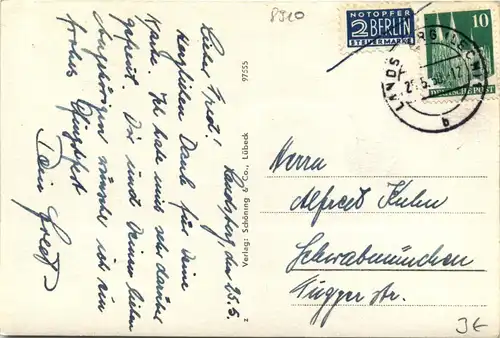 8910
NOTOPFER
2 BERLIN
STEUERMARKE
10
DEUTSCHE POST
LANDSBERG (LECH)
b
Landsberg, den 25.5.
Lieber Fred!
Herzlichen Dank für Deine
Karte. Ich habe mich sehr darüber
gefreut. Dir und Deinen lieben
Angehörigen wünsche ich ein
frohes Pfingstfest
Dein
97555
Verlag: Schöning & Co., Lübeck
z
Herrn
Alfred Kuhn
Schwabmünchen
Fugger str.